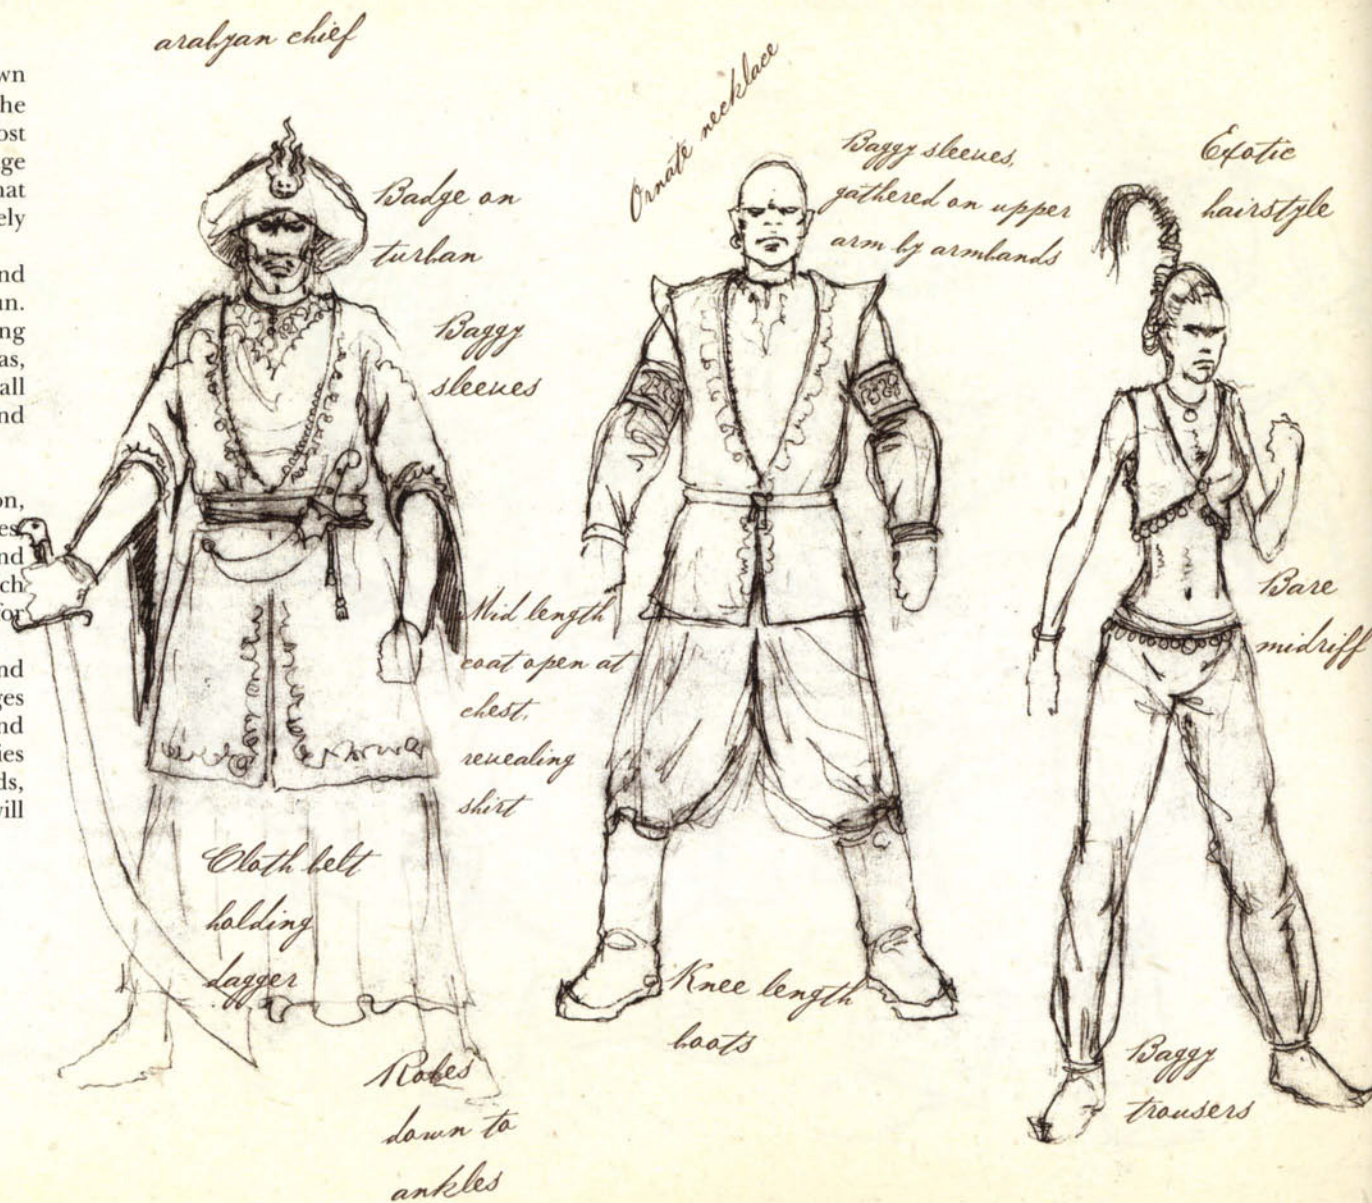 arabyan chief
wn
he
ost
ge
hat
ely
nd
un.
ng
as,
all
nd
on,
es
nd
ch
for
nd
ges
nd
ies
ds,
will
Badge on
turban
Baggy
sleeves
Mid length
coat open at
chest,
revealing
shirt
Cloth belt
holding
dagger
Robes
down to
ankles
Ornate necklace
Baggy sleeves,
gathered on upper
arm by armbands
Knee length
boots
Exotic
hairstyle
Bare
midriff
Baggy
trousers